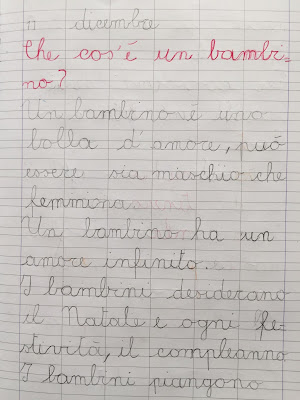 11 dicembre
Che cos'é un bambi=
no?
Un bambino é una
bolla d'amore, può
essere sia maschio che
femmina
Un bambino ha un
amore infinito.
I bambini desiderano
il Natale e ogni fe=
stività, il compleanno
I bambini piangono